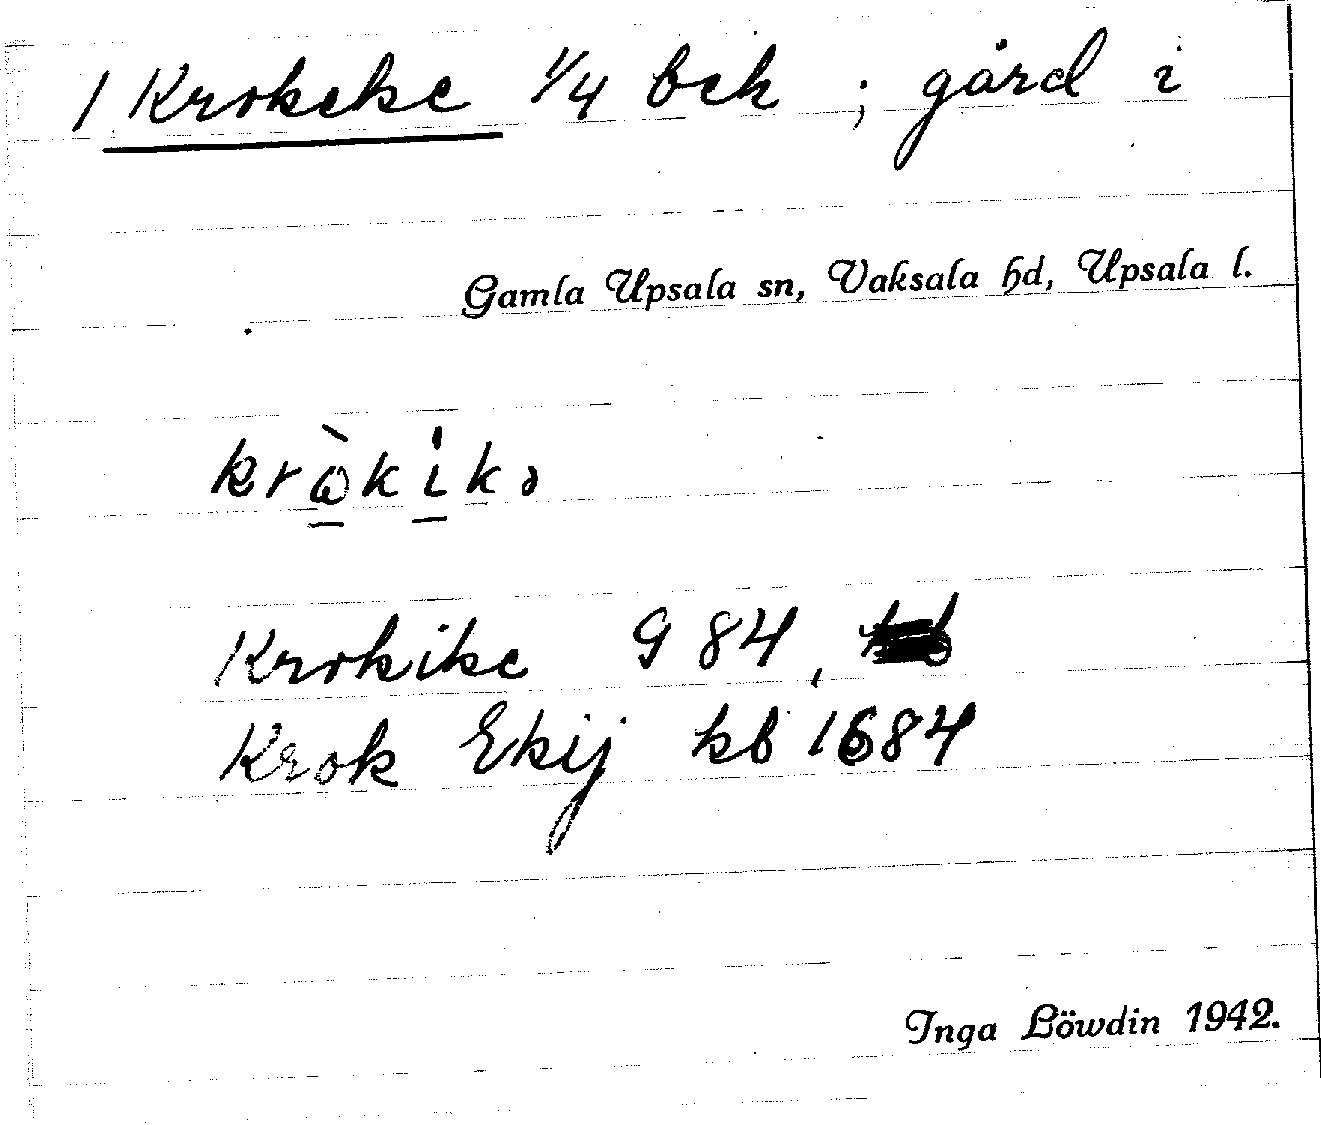 1 Krokeke 1/4 bek ; gård i
Gamla Upsala sn, Vaksala hd, Upsala l.
krὼ̲ki̲kə
Krokike G 84,
Krok Ekij kb 1684
Inga Löwdin 1942.